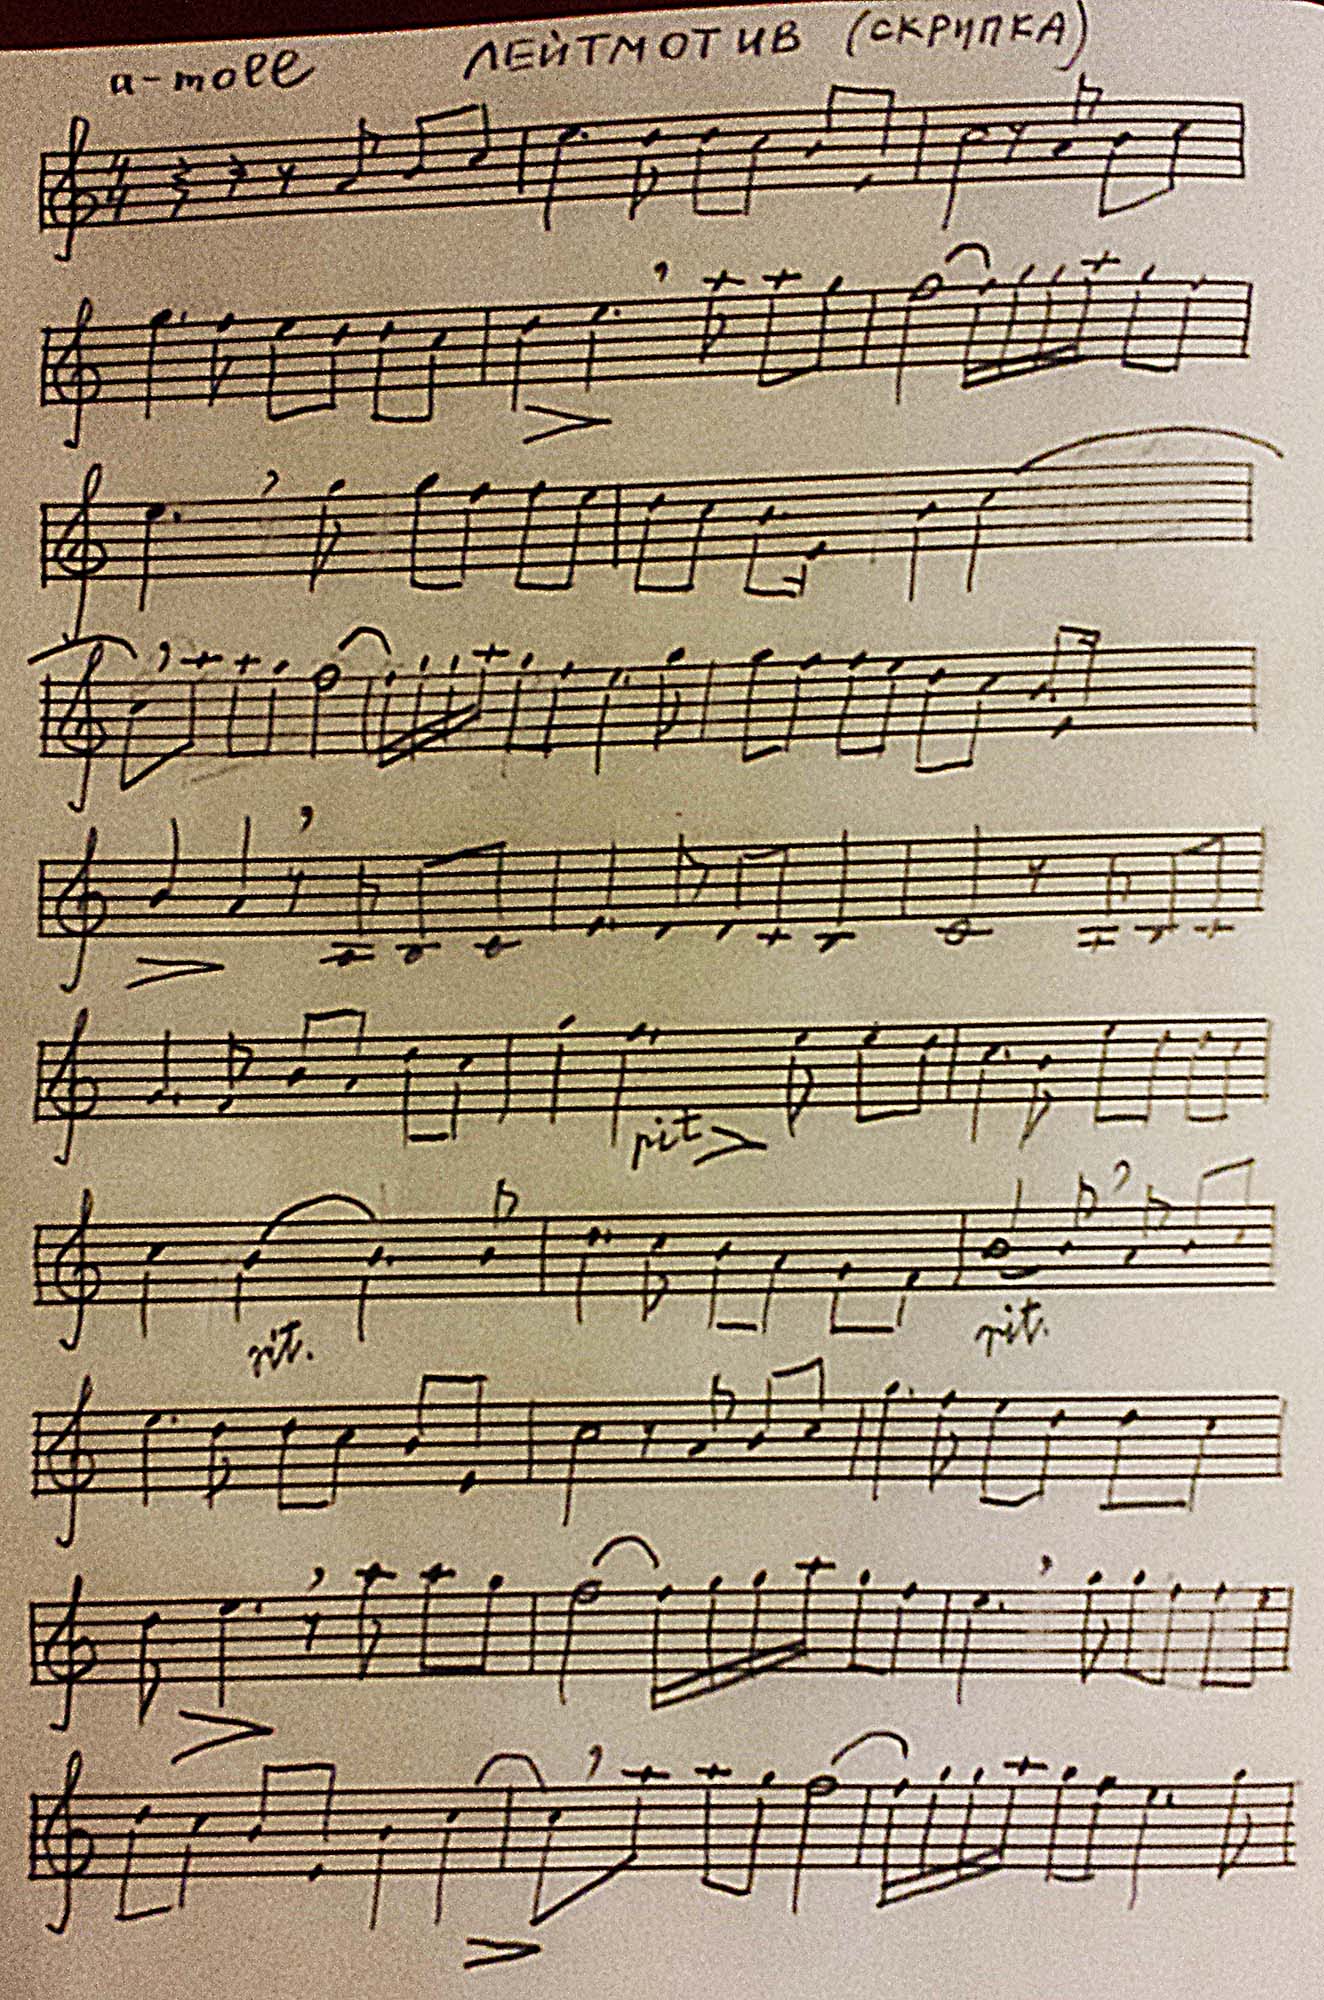 a-moll ЛЕЙТМОТИВ (СКРИПКА)
4
4
rit
rit. rit.